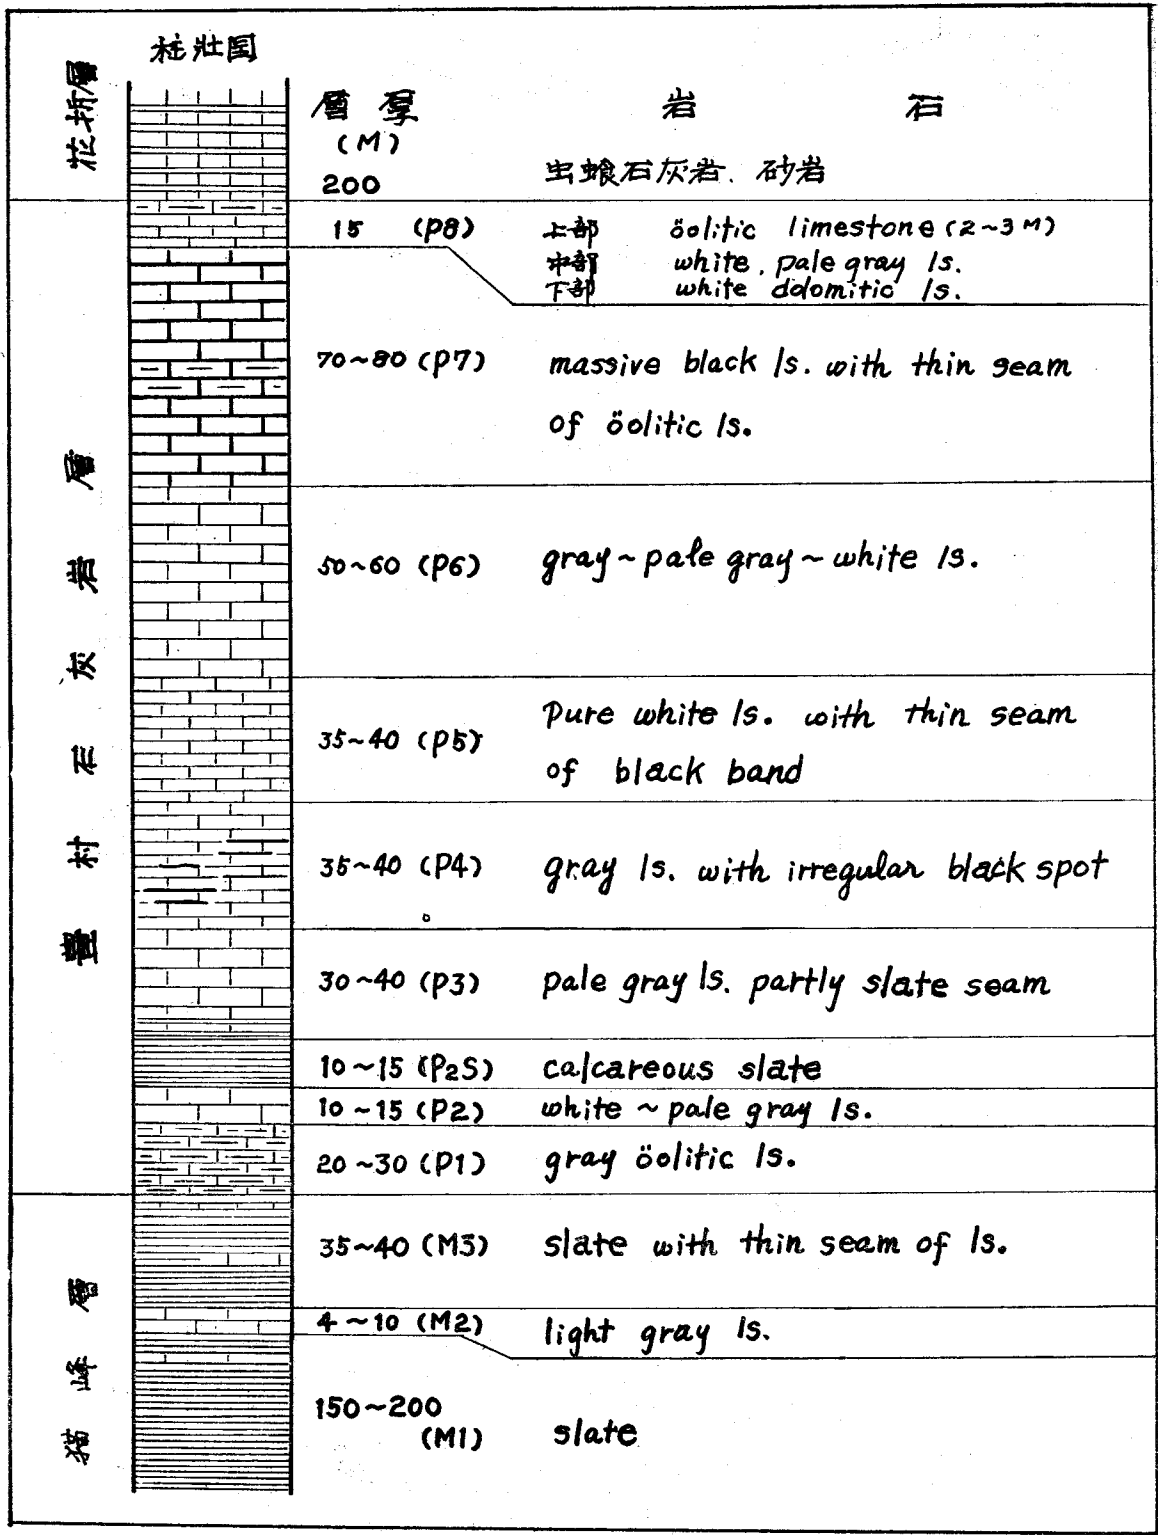 柱壯図
花折層
層厚
岩石
(M)
200
虫蝕石灰岩、砂岩
豊村石灰岩層
15 (P8)
上部 öolitic limestone (2~3M)
中部 white, pale gray ls.
下部 white dolomitic ls.
70~80 (P7)
massive black ls. with thin seam
of öolitic ls.
50~60 (P6)
gray~pale gray~white ls.
35~40 (P5)
Pure white ls. with thin seam
of black band
35~40 (P4)
gray ls. with irregular black spot
30~40 (P3)
pale gray ls. partly slate seam
10~15 (P2S)
calcareous slate
10~15 (P2)
white ~ pale gray ls.
20~30 (P1)
gray öolitic ls.
猫峰層
35~40 (M3)
slate with thin seam of ls.
4~10 (M2)
light gray ls.
150~200
(M1)
slate